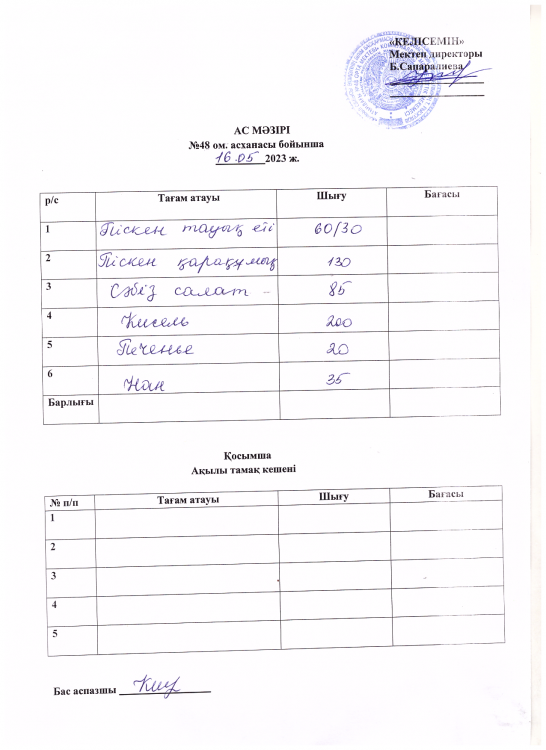 «КЕЛІСЕМІН»
Мектеп директоры
Б.Сапаралиева
АС МӘЗІРІ
№48 ом. асханасы бойынша
16.05 2023 ж.
р/с Тағам атауы Шығу Бағасы
1 Піскен тауық еті 60/30
2 Піскен қарақұмық 130
3 Сәбіз салат - 85
4 Кисель 200
5 Печенье 20
6 Нан 35
Барлығы
Қосымша
Ақылы тамақ кешені
№ п/п Тағам атауы Шығу Бағасы
1
2
3
4
5
Бас аспазшы